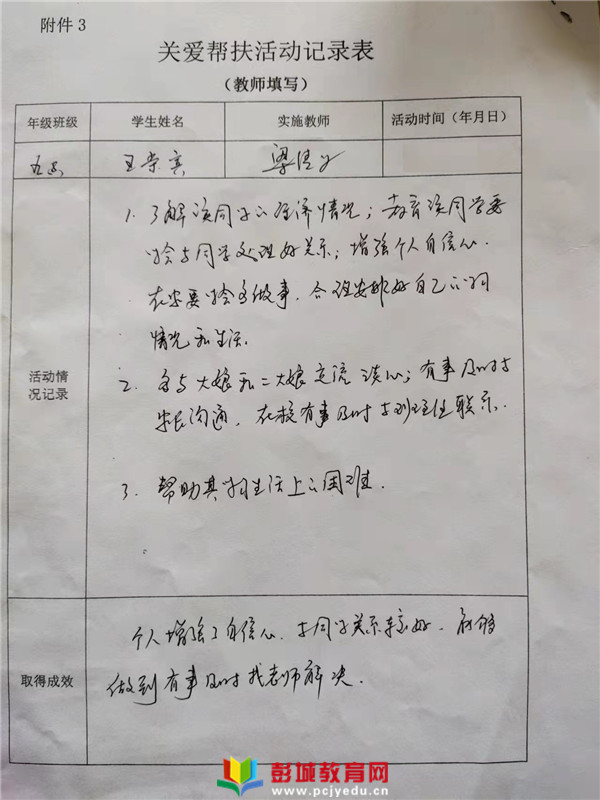 附件 3
关爱帮扶活动记录表
（教师填写）
年级班级 学生姓名 实施教师 活动时间（年月日）
王崇宾 梁
活动情
况记录
1. 了解该同学的经济情况；教育该同学要
学会与同学处理好关系；增强个人自信心.
在家要学会多做事，合理安排好自己的学习
情况和生活.
2. 多与大娘和二大娘交流谈心；有事及时与
家长沟通，在校有事及时与班主任联系.
3. 帮助其学习生活上的困难.
取得成效
个人增强了自信心、与同学关系较好，能够
做到有事及时找老师解决.
彭城教育网
www.pcjyedu.cn